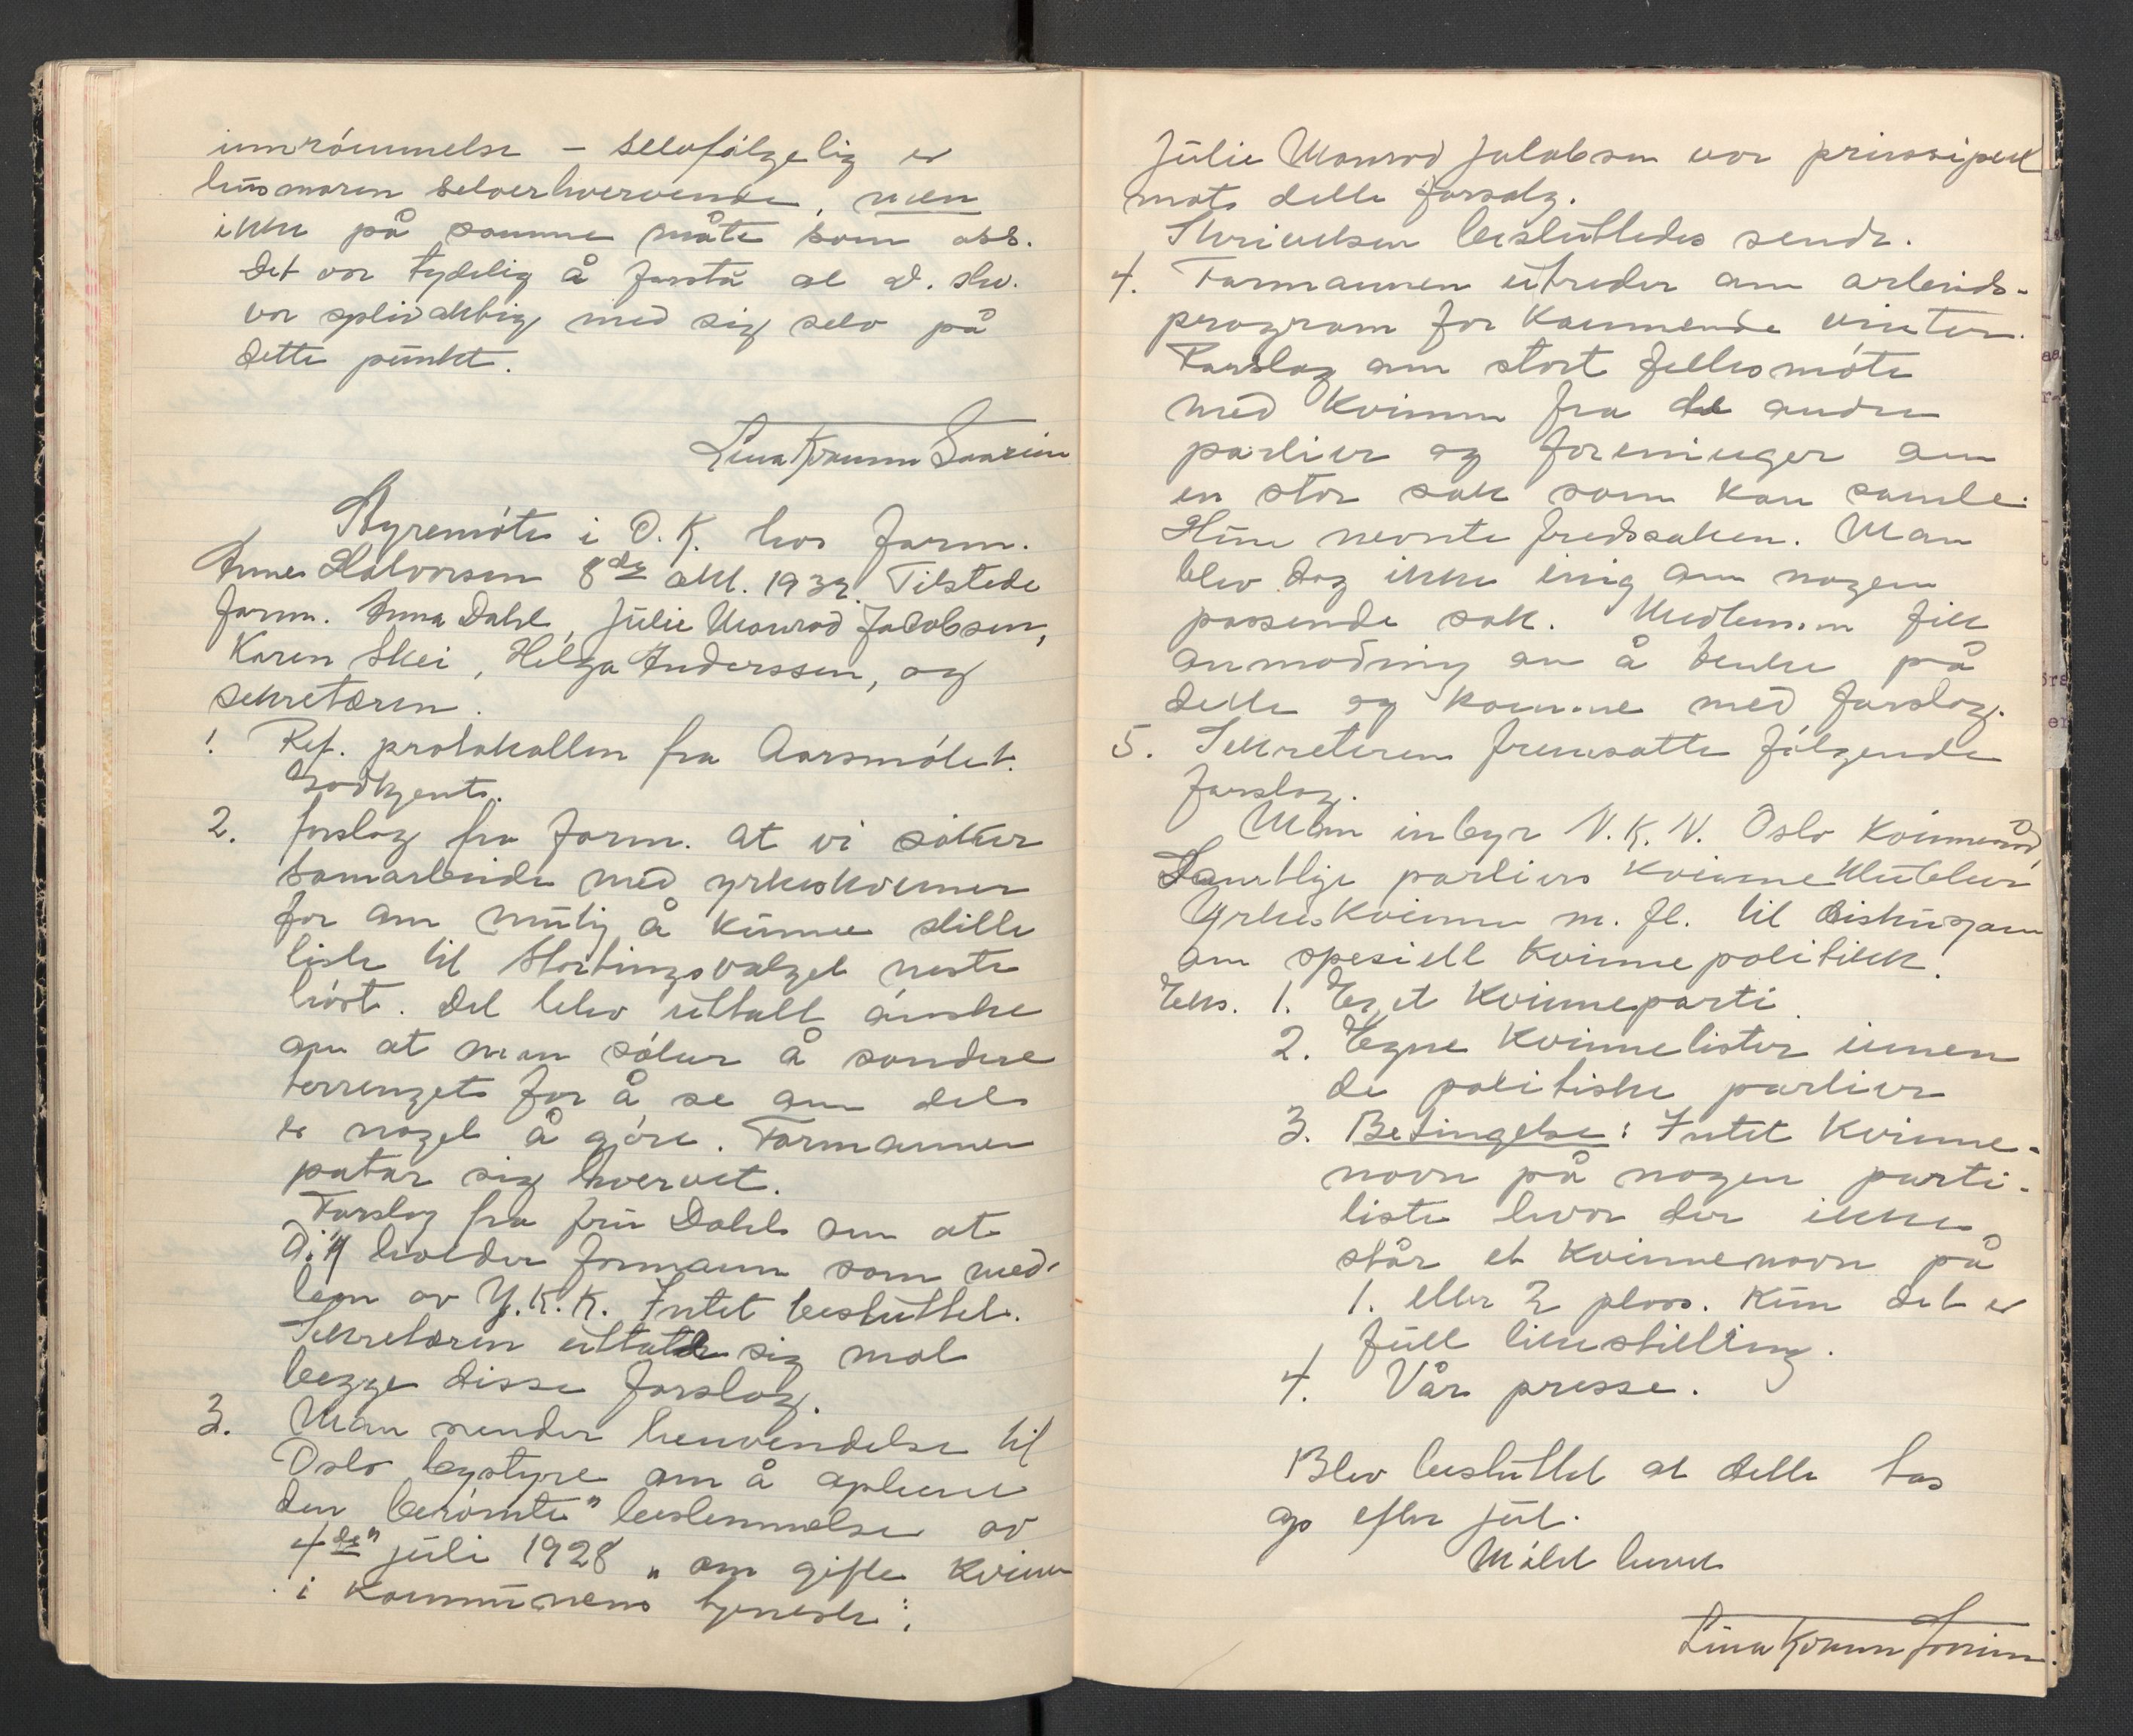 innrömmelse - selvfölgelig er
husmoren selverhvervende, men
ikke på samme måte som abb.
Det var tydelig å forstå at
var splidaktig med sig selv på
dette punkt.
Styremöte i O.K. hos form.
Anna Halvorsen 8de okt. 1932. Tilstede
form. Anna Dahl, Julie Monrad Jacobsen,
Karen Skei, Helga Anderssen, og
sekretæren.
1. Ref. protokollen fra Aarsmötet.
Godkjent.
2. forslag fra form. at vi söker
samarbeide med yrkeskvinner
for om mulig å kunne stille
liste til Stortingsvalget neste
höst. Det blev uttalt önske
om at man söker å sondere
terrenget for å se om det
er noget å gjöre. Formannen
påtar sig hvervet.
Forslag fra fru Dahl om at
O.K holder formann som med-
lem av Y.K.K. Intet besluttet.
Sekretæren uttalte sig mot
begge disse forslag.
3. Man sender henvendelse til
Oslo bystyre om å opheve
den berömte" bestemmelse av
4de" juli 1928 „ om gifte kvinner
i kommunens tjeneste".
Julie Monrad Jakobsen var prinsipielt
mots dette forsalg.
Skrivelsen besluttedes sendt.
4. Formannen utreder om arbeids-
program for kommende vinter.
Forslag om stort fellesmöte
med kvinner fra de andre
partier og foreninger om
en stor sak som kan samle.
Hun nevnte fredssaken. Man
blev dog ikke enig om nogen
passende sak. Medlemmen fikk
anmodning om å tenke på
dette og komme med forslag.
5. Sekreteren fremsatte fölgende
forslag.
Man inbyr N.K.N. Oslo Kvinneråd,
Samtlige partiers Kvinneklubber
Yrkeskvinner m. fl. til diskusjon
om spesiell kvinnepolitikk.
Eks. 1. Eget Kvinneparti.
2. Egne Kvinnelister innen
de politiske partier
3. Betingelse: Intet Kvinne-
navn på nogen parti-
liste hvor der ikke
står et kvinnenavn på
1. eller 2 plass. Kun det er
full likestilling.
4. Vår presse.
Blev besluttet at dette tas
op efter jul.
Mötet hevet